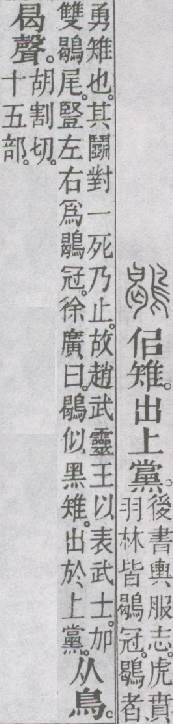 鶡佀雉。出上黨。
後書輿服志。虎賁
羽林皆鶡冠。鶡者
勇雉也。其鬭對一死乃止。故趙武靈王以表武士。加
雙鶡尾。豎左右爲鶡冠。徐廣曰。鶡似黑雉。出於上黨。
从鳥。
曷聲。
胡割切。
十五部。